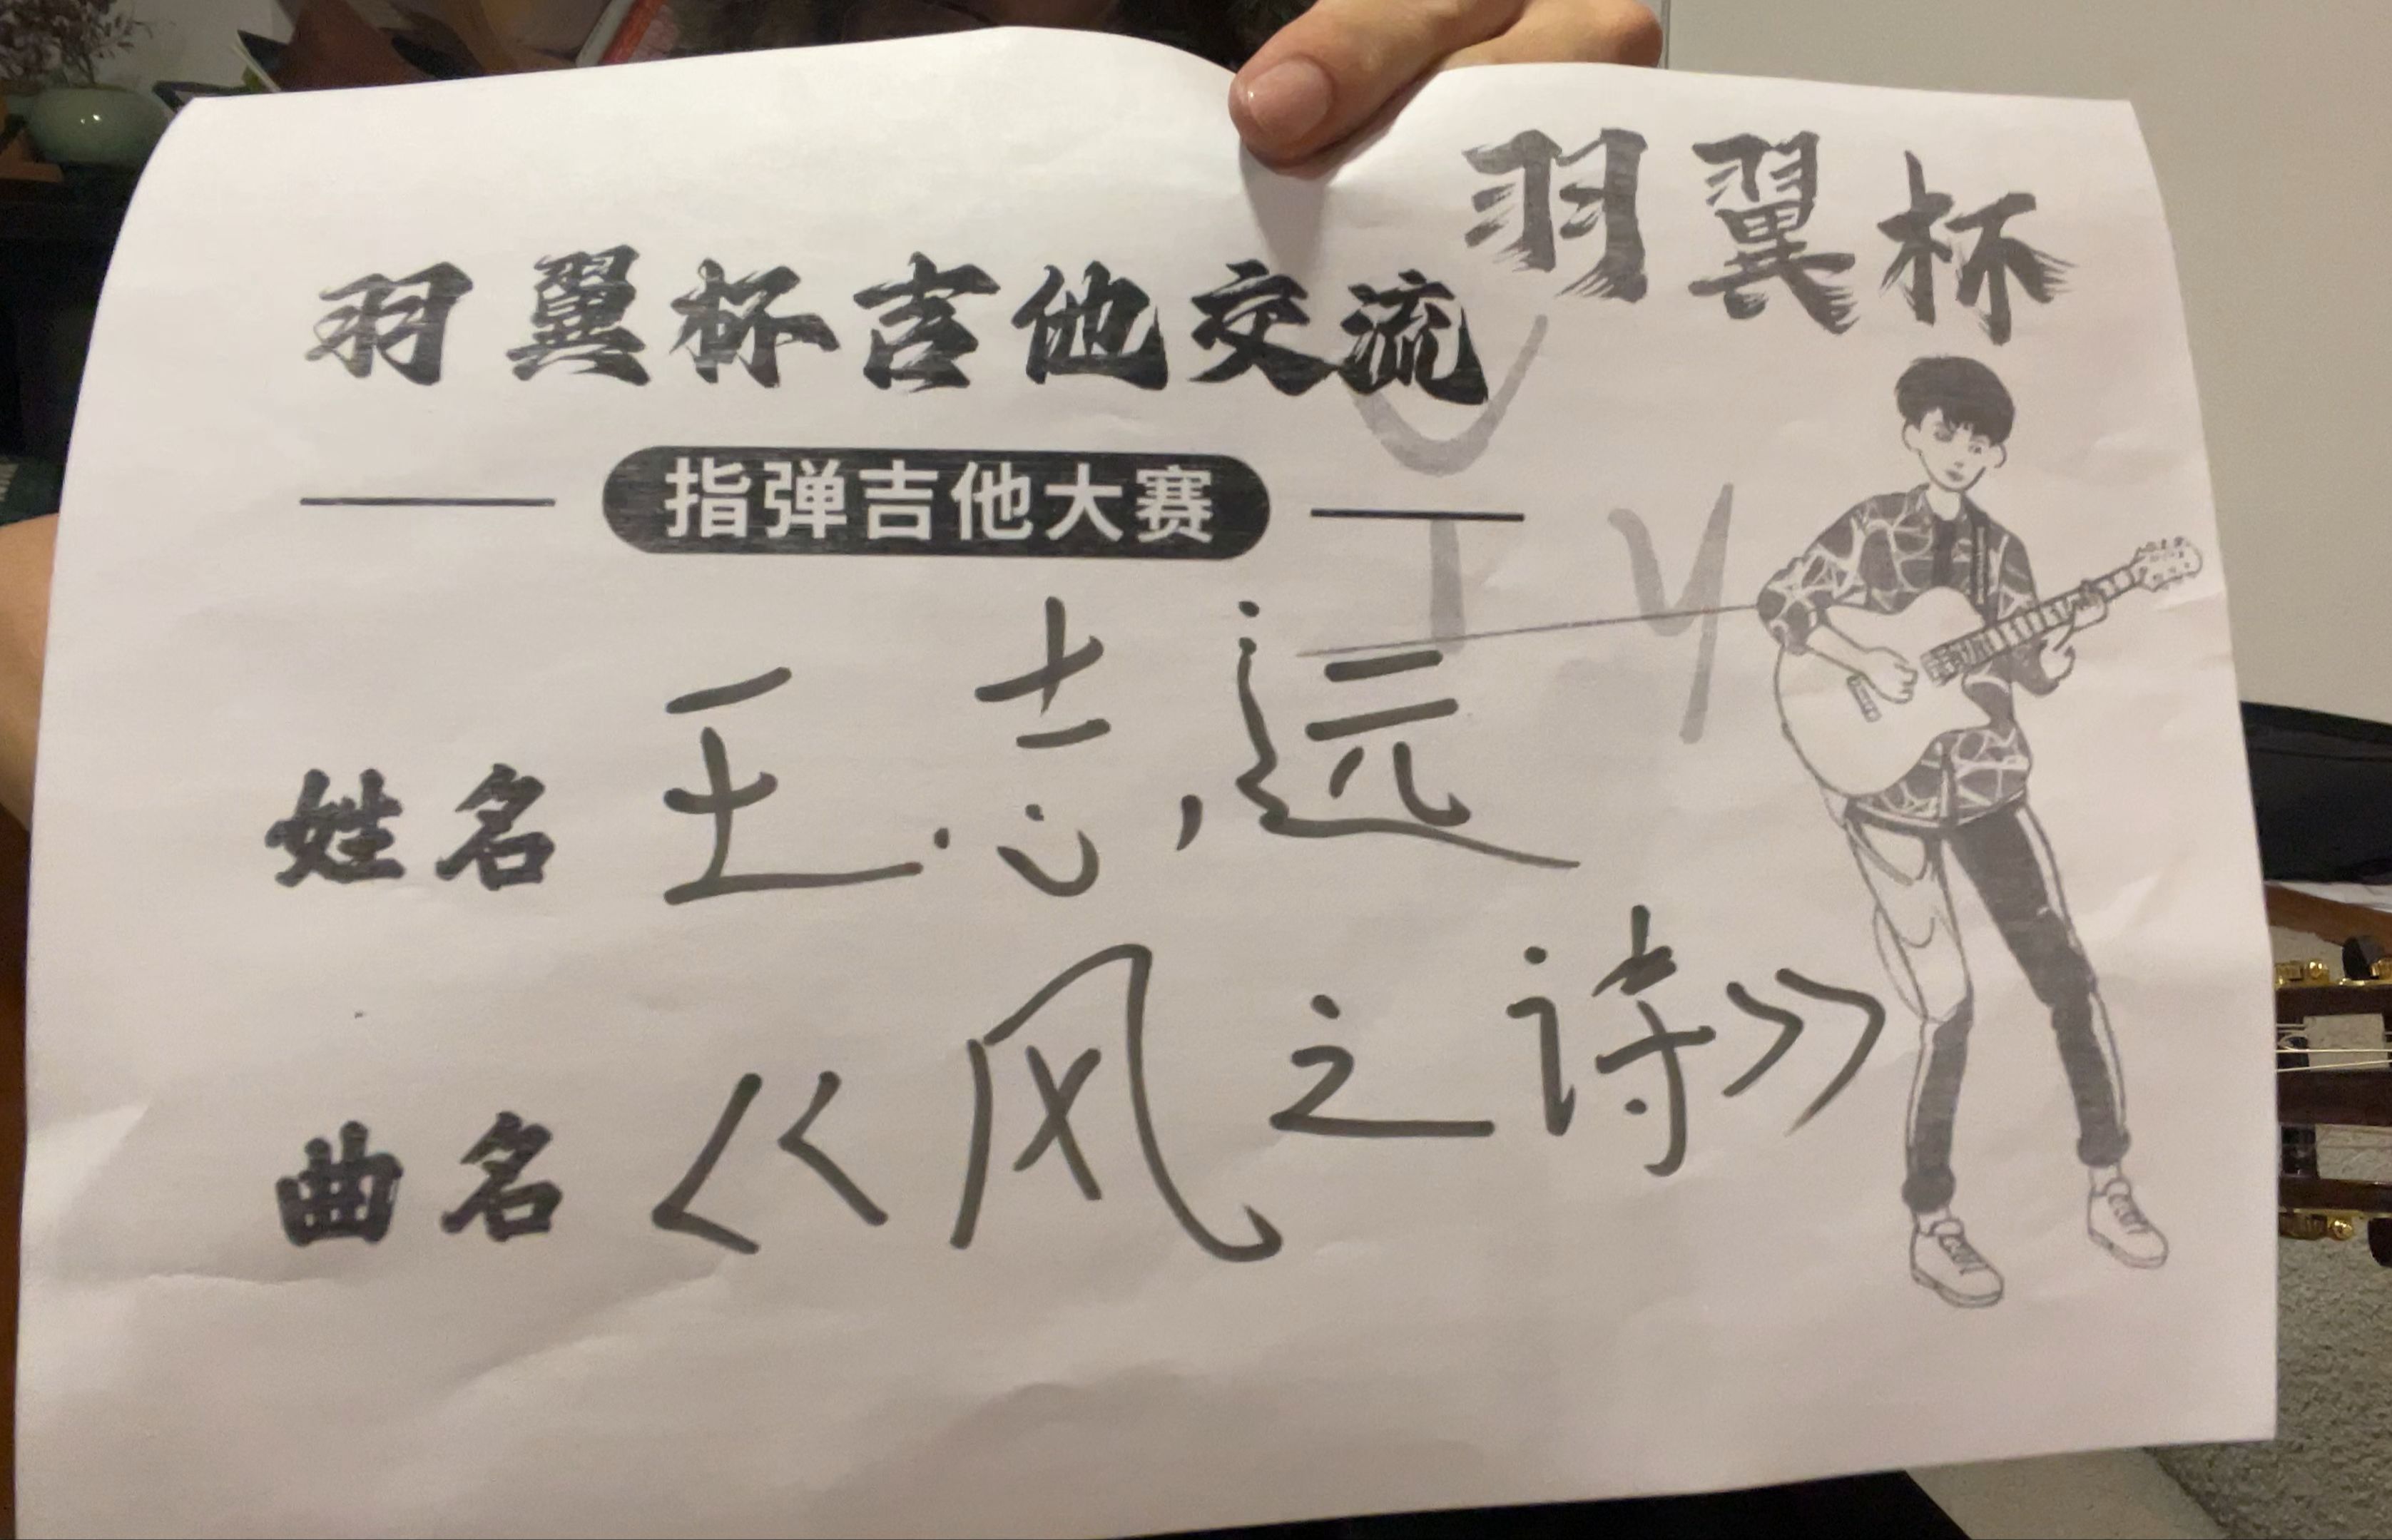 羽翼杯
羽翼杯吉他交流
指弹吉他大赛
姓名 王志远
曲名 《风之诗》